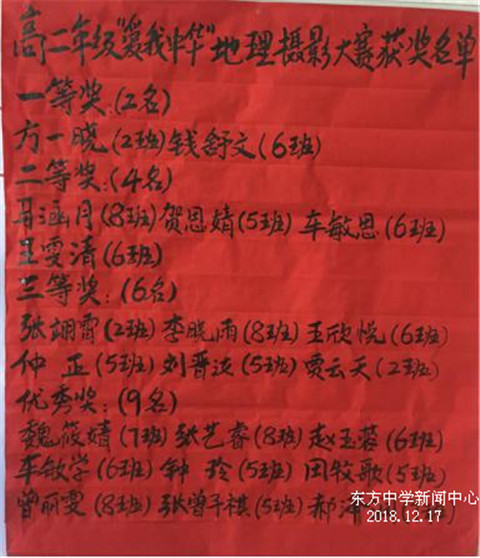 高二年级"爱我中华"地理摄影大赛获奖名单
一等奖:(2名)
方一晓(2班)钱舒文(6班)
二等奖:(4名)
马涵月(8班)贺恩婧(5班)车敏思(6班)
王雯清(6班)
三等奖:(6名)
张翊霄(2班)李晓雨(8班)王欣悦(6班)
仲 正(5班)刘晋 (5班)贾云天(2班)
优秀奖:(9名)
魏筱婧(7班)张艺睿(8班)赵玉蓉(6班)
车敏学(6班)钟 玲(5班)田牧歌(5班)
曾丽雯(8班)张曾子祺(5班)郝
东方中学新闻中心
2018.12.17